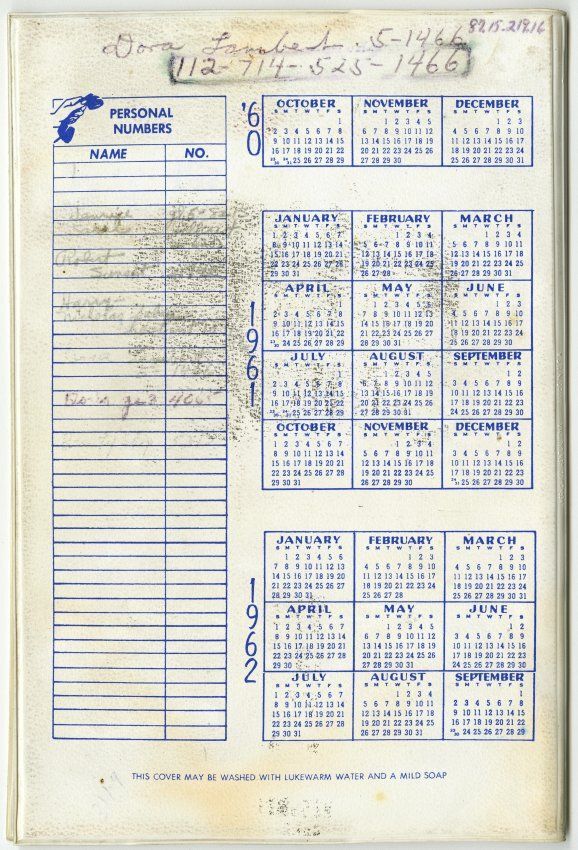 8215-21916
Dora Lambert 5-1466
112-714-525-1466
PERSONAL
NUMBERS
NAME NO.
Robert
Dodge 3 4665
'60
OCTOBER NOVEMBER DECEMBER
S M T W T F S S M T W T F S S M T W T F S
1 1 2 3 4 5 1 2 3
2 3 4 5 6 7 8 6 7 8 9 10 11 12 4 5 6 7 8 9 10
9 10 11 12 13 14 15 13 14 15 16 17 18 19 11 12 13 14 15 16 17
16 17 18 19 20 21 22 20 21 22 23 24 25 26 18 19 20 21 22 23 24
23/30 24/31 25 26 27 28 29 27 28 29 30 25 26 27 28 29 30 31
1961
JANUARY FEBRUARY MARCH
S M T W T F S S M T W T F S S M T W T F S
1 2 3 4 5 6 7 1 2 3 4 1 2 3 4
8 9 10 11 12 13 14 5 6 7 8 9 10 11 5 6 7 8 9 10 11
15 16 17 18 19 20 21 12 13 14 15 16 17 18 12 13 14 15 16 17 18
22 23 24 25 26 27 28 19 20 21 22 23 24 25 19 20 21 22 23 24 25
29 30 31 26 27 28 26 27 28 29 30 31
APRIL MAY JUNE
S M T W T F S S M T W T F S S M T W T F S
1 1 2 3 4 5 6 1 2 3
2 3 4 5 6 7 8 7 8 9 10 11 12 13 4 5 6 7 8 9 10
9 10 11 12 13 14 15 14 15 16 17 18 19 20 11 12 13 14 15 16 17
16 17 18 19 20 21 22 21 22 23 24 25 26 27 18 19 20 21 22 23 24
23/30 24 25 26 27 28 29 28 29 30 31 25 26 27 28 29 30
JULY AUGUST SEPTEMBER
S M T W T F S S M T W T F S S M T W T F S
1 1 2 3 4 5 1 2
2 3 4 5 6 7 8 6 7 8 9 10 11 12 3 4 5 6 7 8 9
9 10 11 12 13 14 15 13 14 15 16 17 18 19 10 11 12 13 14 15 16
16 17 18 19 20 21 22 20 21 22 23 24 25 26 17 18 19 20 21 22 23
23/30 24/31 25 26 27 28 29 27 28 29 30 31 24 25 26 27 28 29 30
OCTOBER NOVEMBER DECEMBER
S M T W T F S S M T W T F S S M T W T F S
1 2 3 4 5 6 7 1 2 3 4 1 2
8 9 10 11 12 13 14 5 6 7 8 9 10 11 3 4 5 6 7 8 9
15 16 17 18 19 20 21 12 13 14 15 16 17 18 10 11 12 13 14 15 16
22 23 24 25 26 27 28 19 20 21 22 23 24 25 17 18 19 20 21 22 23
29 30 31 26 27 28 29 30 24/31 25 26 27 28 29 30
1962
JANUARY FEBRUARY MARCH
S M T W T F S S M T W T F S S M T W T F S
1 2 3 4 5 6 1 2 3 1 2 3
7 8 9 10 11 12 13 4 5 6 7 8 9 10 4 5 6 7 8 9 10
14 15 16 17 18 19 20 11 12 13 14 15 16 17 11 12 13 14 15 16 17
21 22 23 24 25 26 27 18 19 20 21 22 23 24 18 19 20 21 22 23 24
28 29 30 31 25 26 27 28 25 26 27 28 29 30 31
APRIL MAY JUNE
S M T W T F S S M T W T F S S M T W T F S
1 2 3 4 5 6 7 1 2 3 4 5 1 2
8 9 10 11 12 13 14 6 7 8 9 10 11 12 3 4 5 6 7 8 9
15 16 17 18 19 20 21 13 14 15 16 17 18 19 10 11 12 13 14 15 16
22 23 24 25 26 27 28 20 21 22 23 24 25 26 17 18 19 20 21 22 23
29 30 27 28 29 30 31 24 25 26 27 28 29 30
JULY AUGUST SEPTEMBER
S M T W T F S S M T W T F S S M T W T F S
1 2 3 4 5 6 7 1 2 3 4 1
8 9 10 11 12 13 14 5 6 7 8 9 10 11 2 3 4 5 6 7 8
15 16 17 18 19 20 21 12 13 14 15 16 17 18 9 10 11 12 13 14 15
22 23 24 25 26 27 28 19 20 21 22 23 24 25 16 17 18 19 20 21 22
29 30 31 26 27 28 29 30 31 23/30 24 25 26 27 28 29
THIS COVER MAY BE WASHED WITH LUKEWARM WATER AND A MILD SOAP